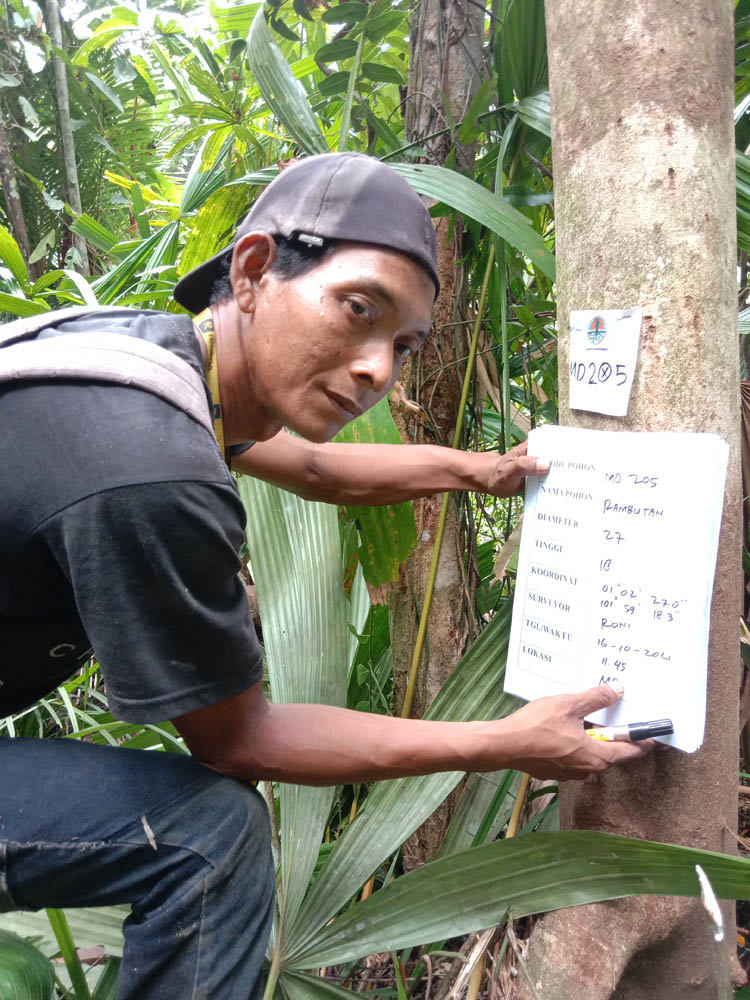 MD205
KODE POHON MD 205
NAMA POHON RAMBUTAN
DIAMETER 27
TINGGI 18
KOORDINAT 01° 02' 27.0"
101° 59' 18.3"
SURVEYOR RONI
TGL/WAKTU 16-10-2021
11.45
LOKASI MD